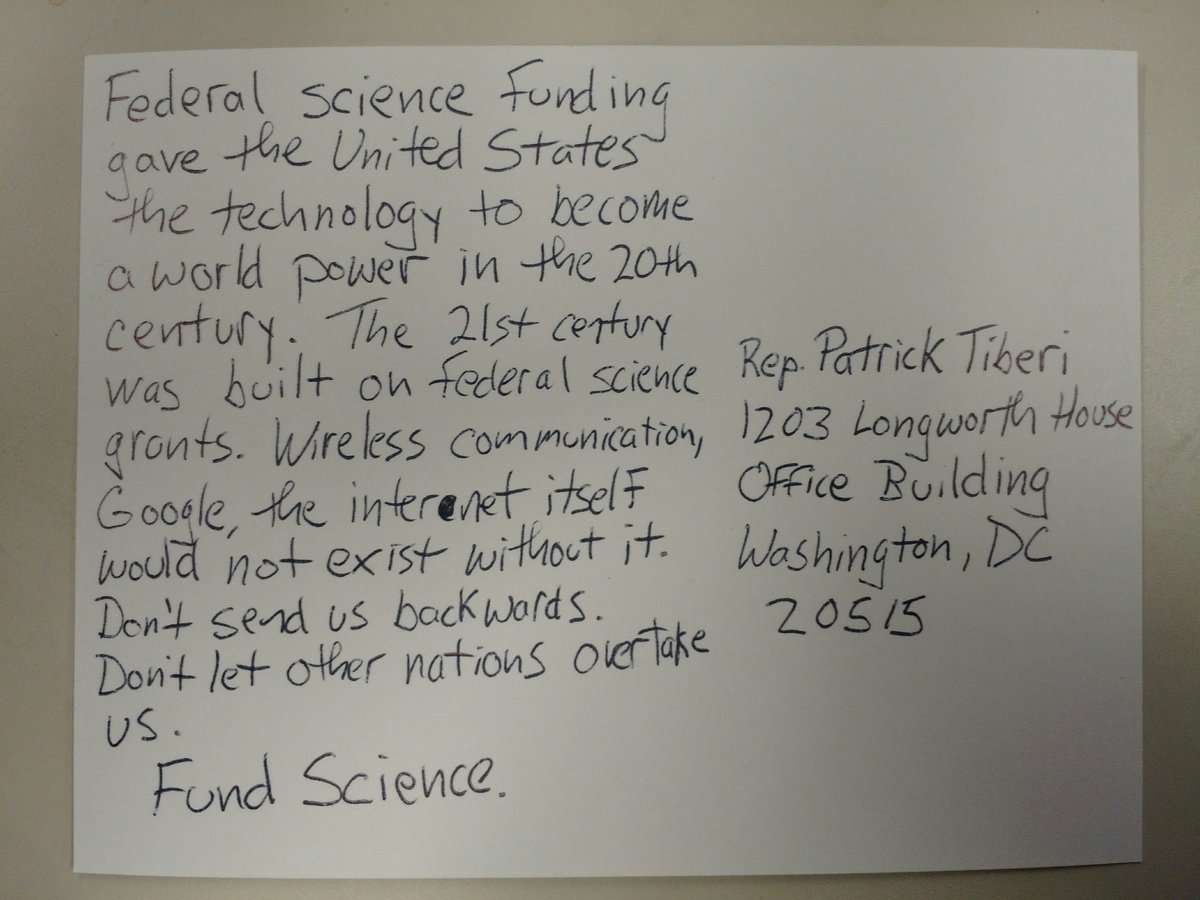 Federal science funding
gave the United States
the technology to become
a world power in the 20th
century. The 21st century
was built on federal science
grants. Wireless communication,
Google, the internet itself
would not exist without it.
Don't send us backwards.
Don't let other nations overtake
us.
Fund Science.
Rep. Patrick Tiberi
1203 Longworth House
Office Building
Washington, DC
20515